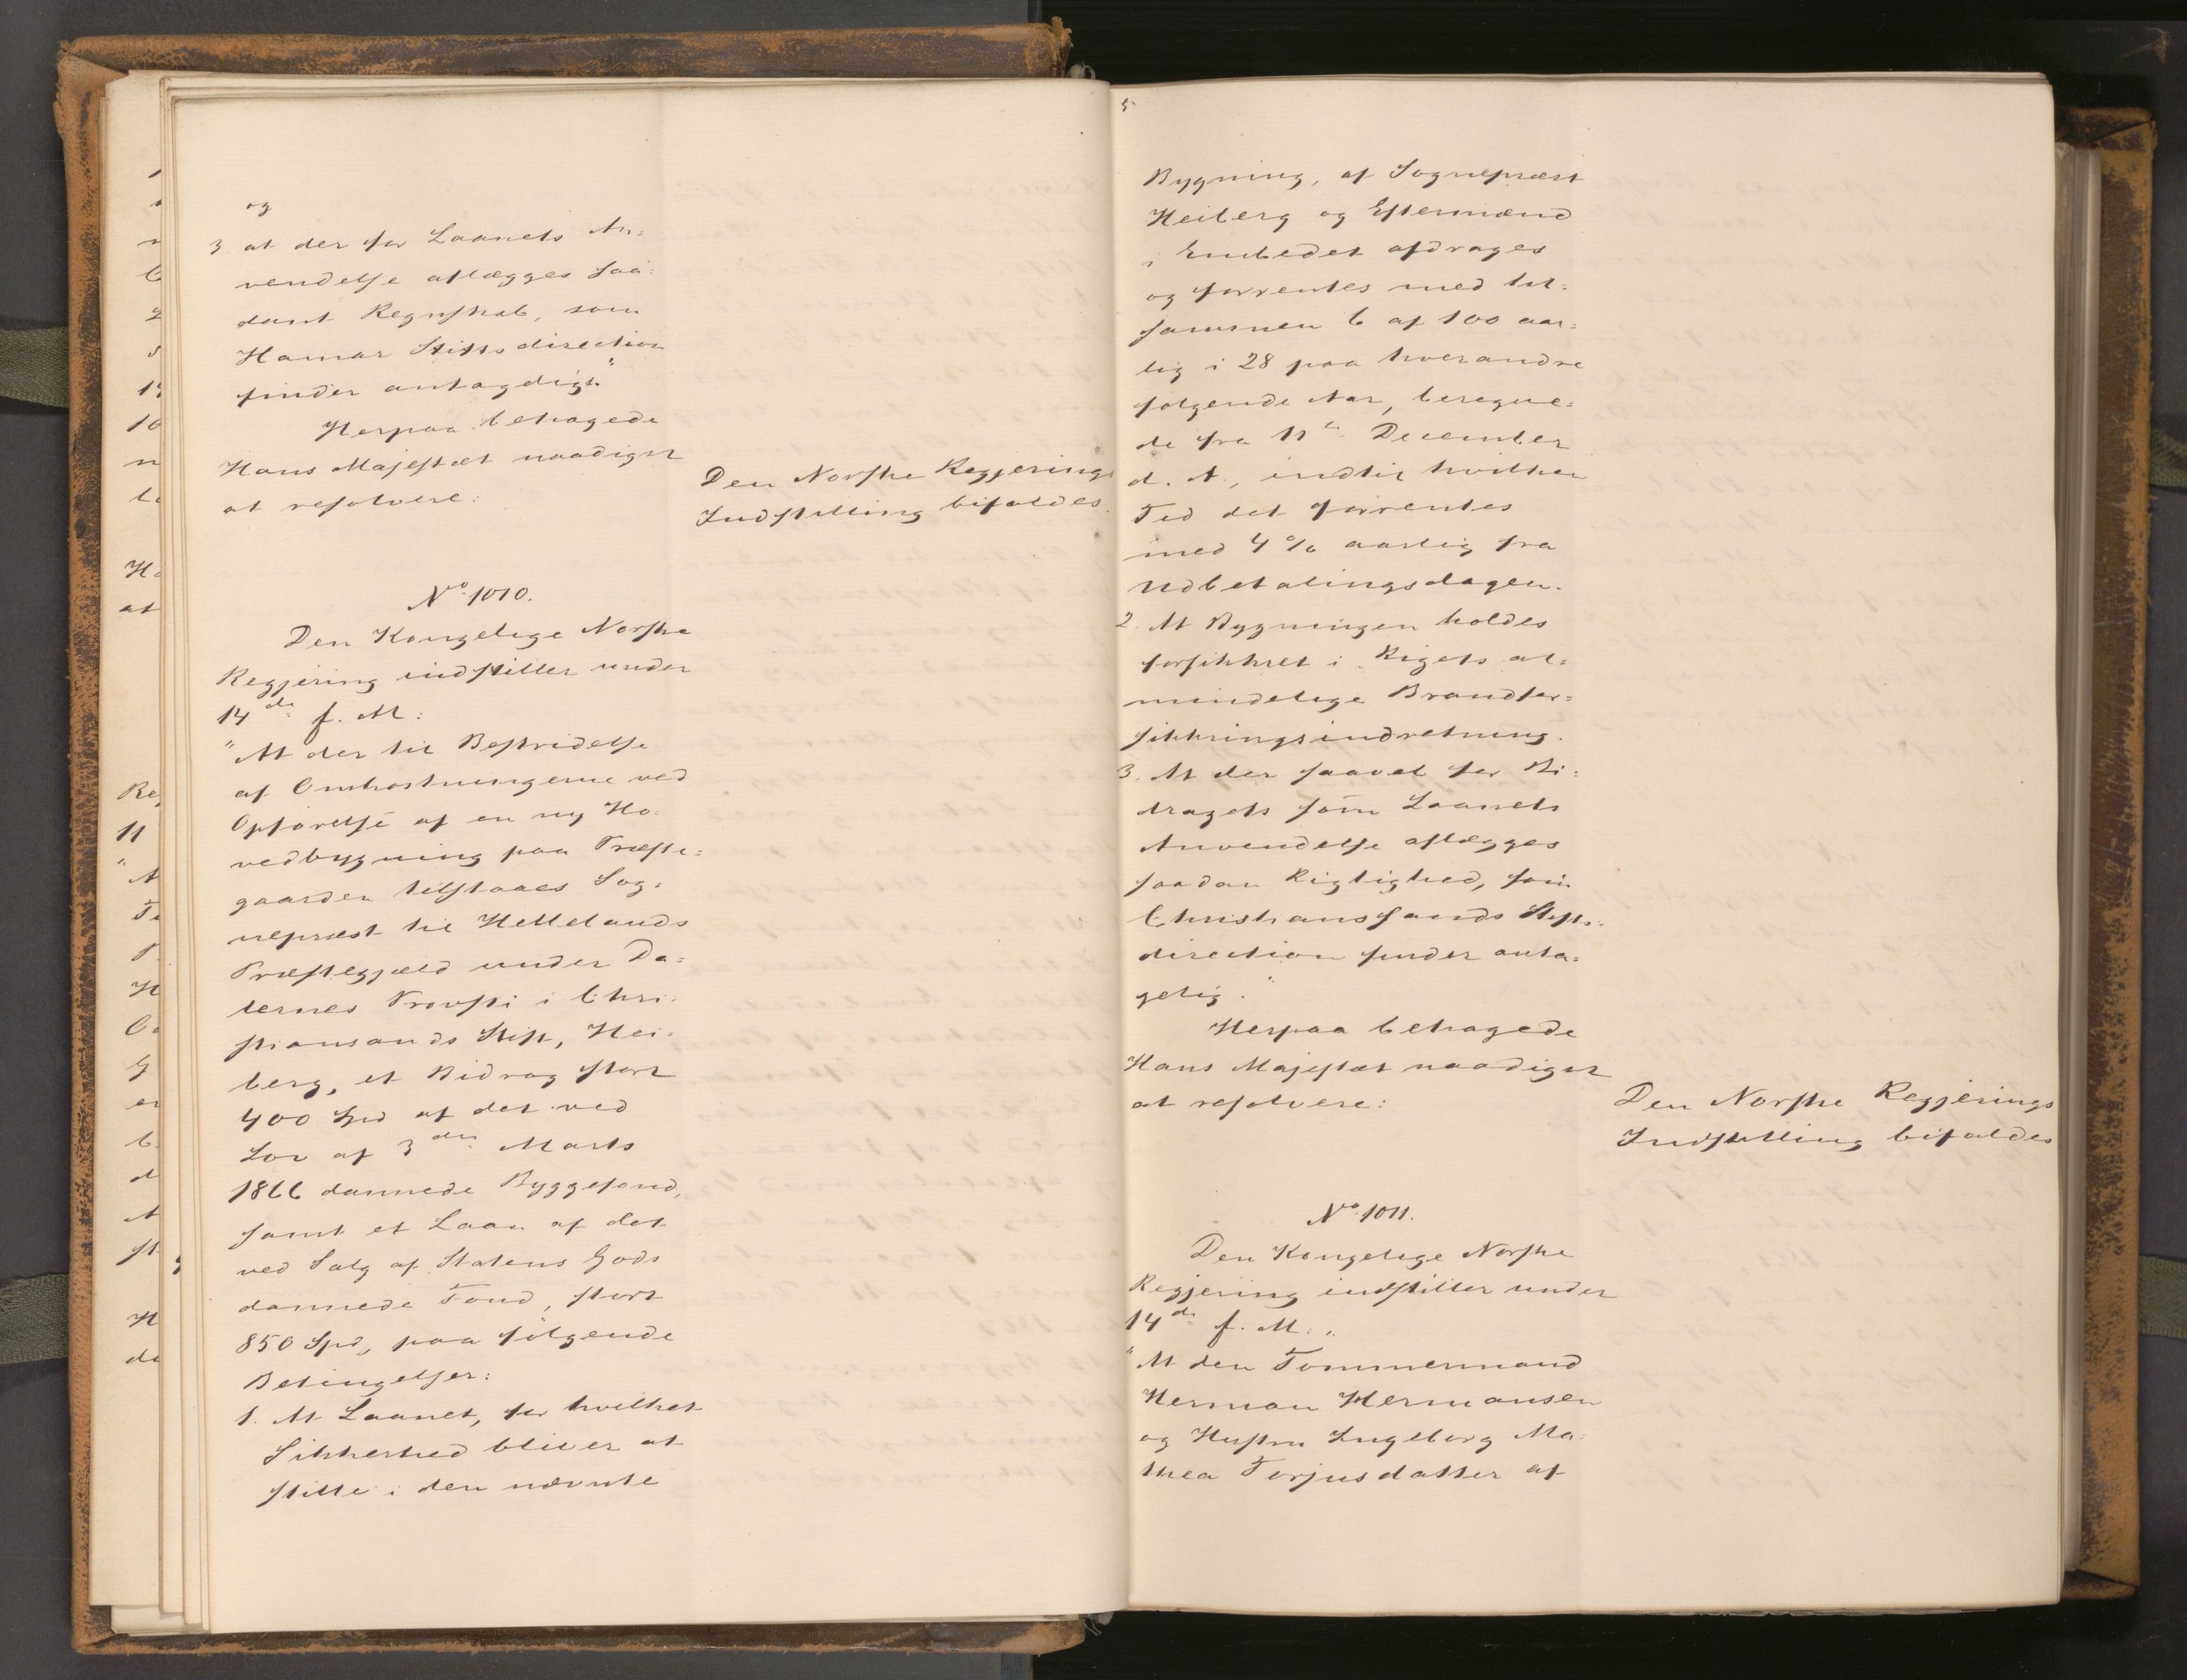 og
3. at der for Laanets An=
vendelse aflægges saa=
dant Regnskab, som
Hamar Stiftsdirection
finder antageligt."
Herpaa behagede
Hans Majestæt naadigst
at resolvere:
Den Norske Regjerings
Indstilling bifaldes.
No 1010.
Den Kongelige Norske
Regjering indstiller under
14de f. M:
"At der til Bestridelse
af Omkostningerne ved
Opførelse af en ny Ho=
vedbygning paa Præste=
gaarden tilstaaes Sog=
nepræst til Hellelands
Præstegjæld under Da=
lernes Provsti i Chri=
stiansands Stift, Hei=
berg, et Bidrag stort
400 Spd af det ved
Lov af 3die Marts
1866 dannede Byggefond,
samt et Laan af det
ved Salg af Statens Gods
dannede Fond, stort
850 Spd, paa følgende
Betingelser:
1. At Laanet, for hvilket
Sikkerhed bliver at
stille i den nævnte
5
Bygning, af Sognepræst
Heiberg og Eftermænd
i Embedet afdrages
og forrentes med til=
sammen 6 af 100 aar=
lig i 28 paa hverandre
følgende Aar, beregne=
de fra 11te December
d. A., indtil hvilken
Tid det forrentes
med 4 % aarlig fra
Udbetalingsdagen.
2. At Bygningen holdes
forsikkret i Rigets al=
mindelige Brandfor=
sikkringsindretning.
3. At der saavel for Bi=
dragets som Laanets
Anvendelse aflægges
saadan Rigtighed, som
Christianssands Stifts=
direction finder anta=
gelig."
Herpaa behagede
Hans Majestæt naadigst
at resolvere:
Den Norske Regjerings
Indstilling bifaldes
No 1011.
Den Kongelige Norske
Regjering indstiller under
14de f. M:
"At den Tømmermand
Herman Hermansen
og Hustru Ingeborg Ma=
thea Torjusdatter af